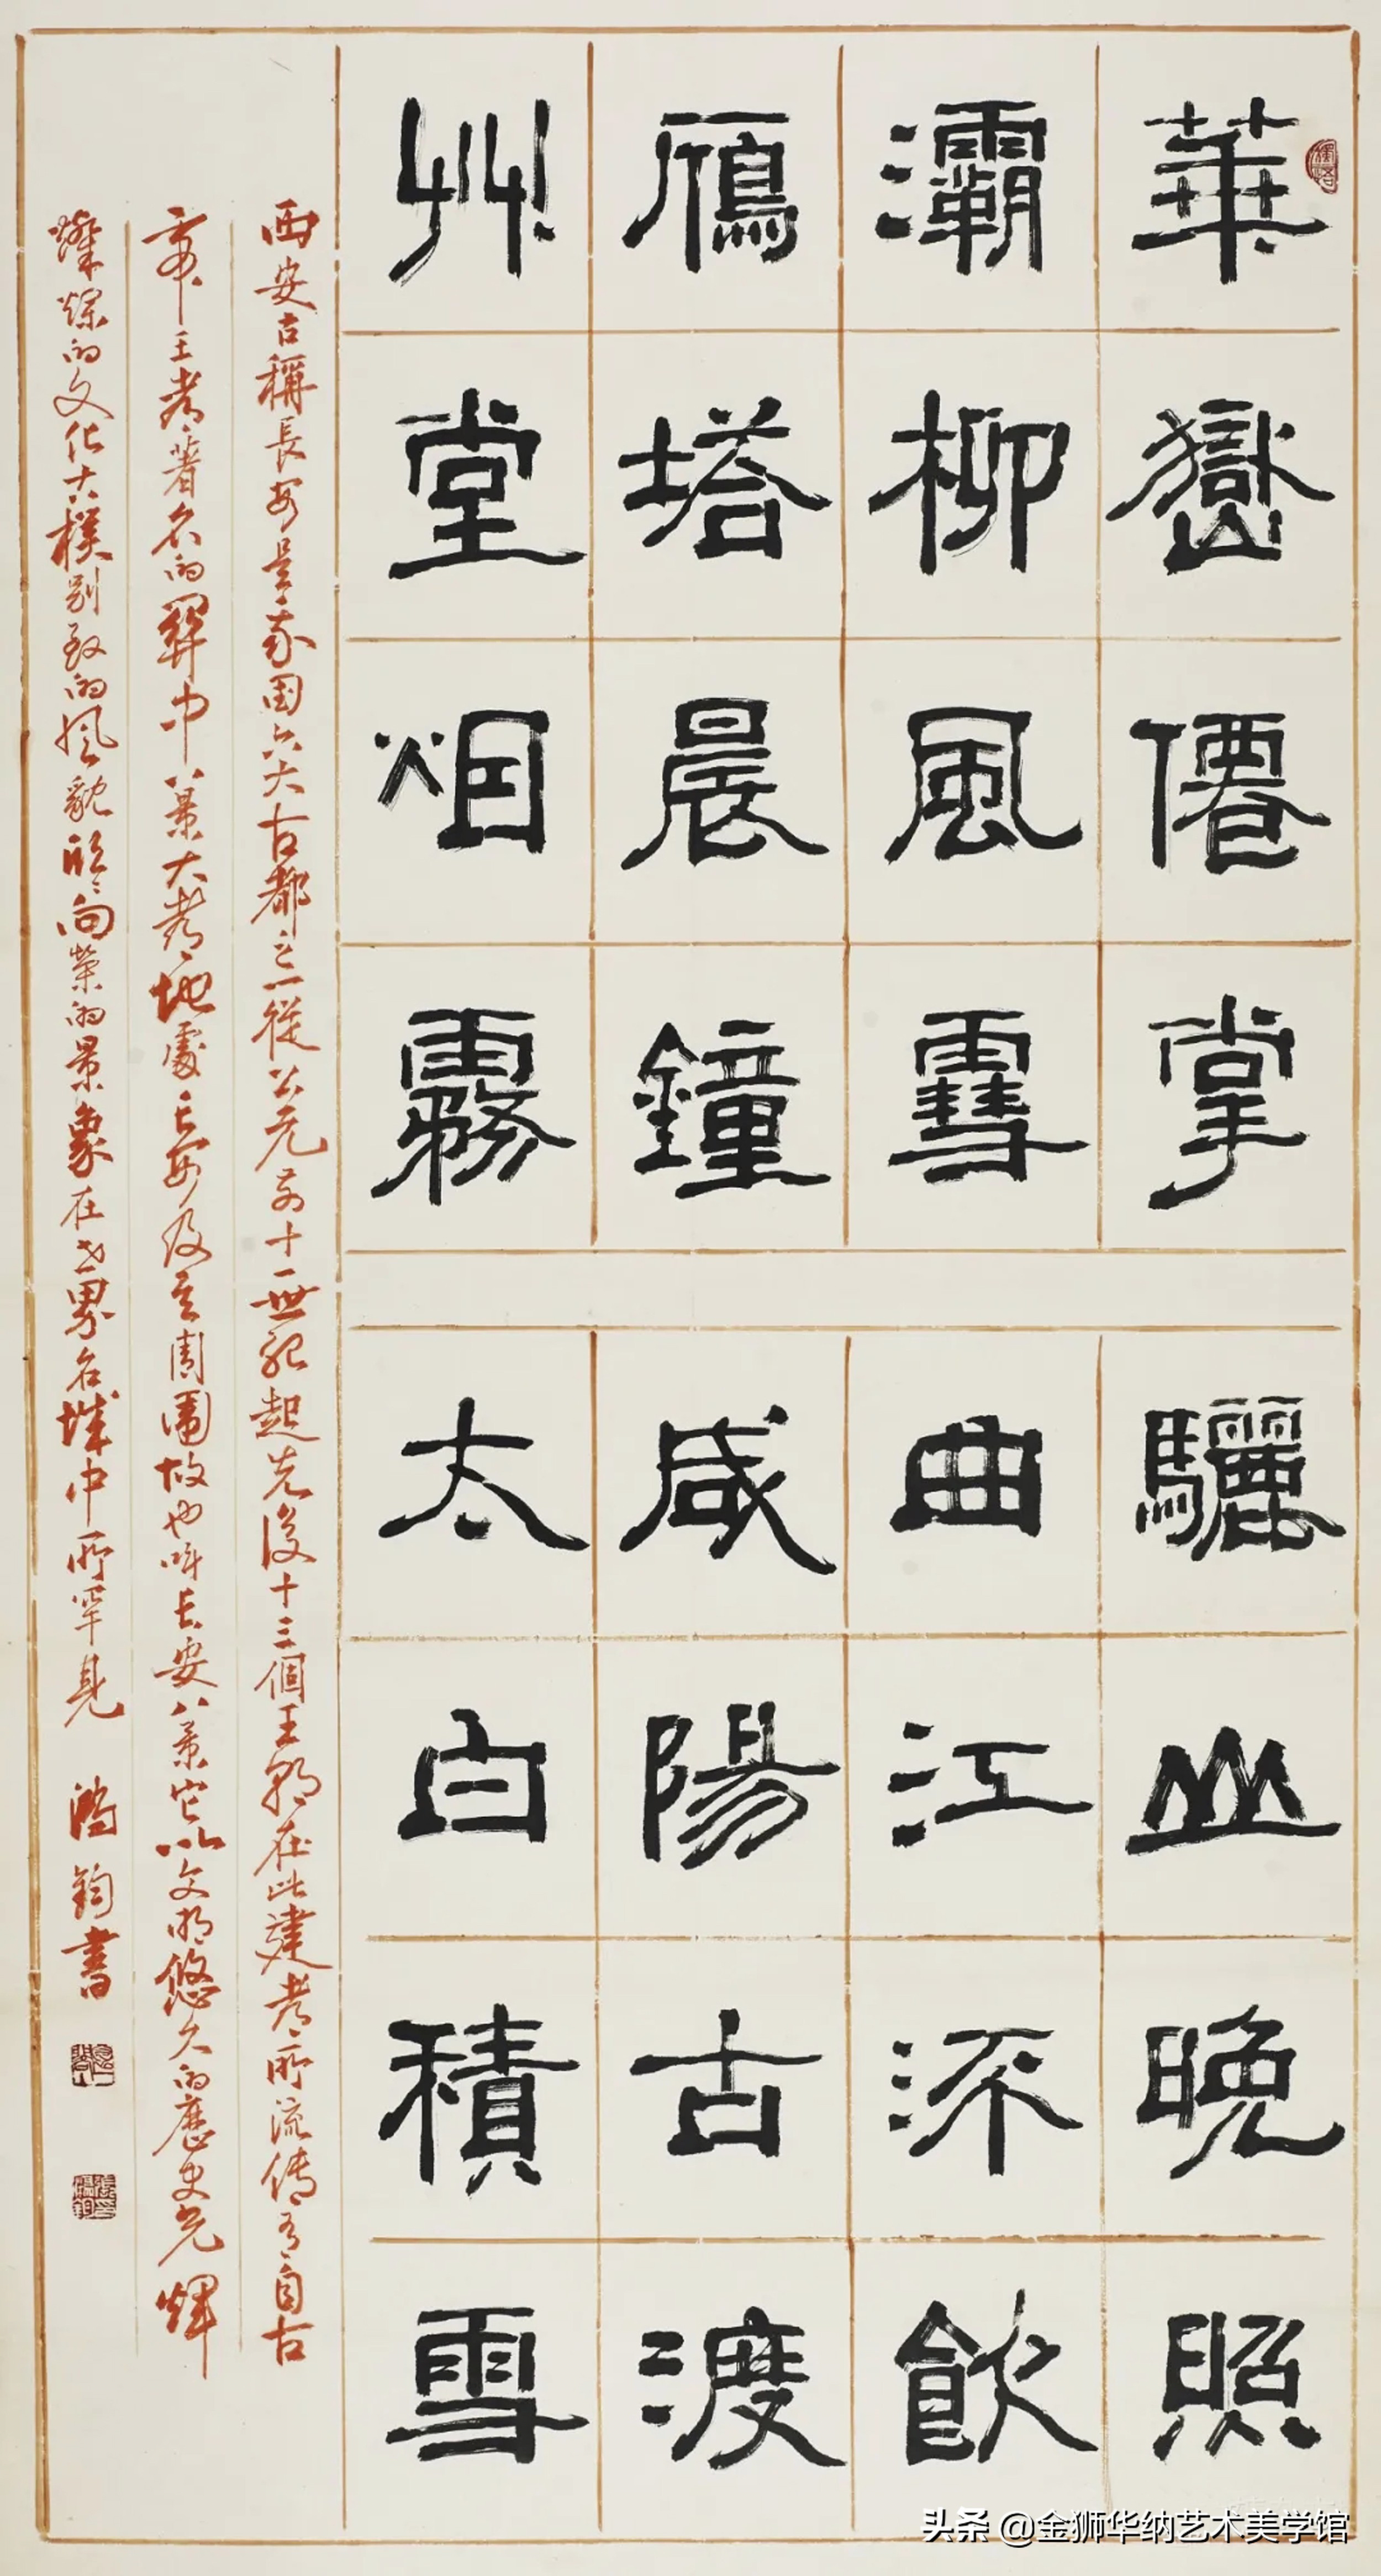 華嶽僊掌驪山晚照
灞柳風雪曲江流飲
鴈塔晨鐘咸陽古渡
艸堂烟霧太白積雪
西安古稱長安是我国六大古都之一從公元前十一世紀起先後十三個王朝在此建都所流传有自古
帝王都著名的關中八景大都地處长安及其周圍故也叫长安八景它以文明悠久的歷史光輝
燦爛的文化古樸别致的風貌欣欣向榮的景象在世界名城中所罕見 鴻鈞書
头条 @金狮华纳艺术美学馆